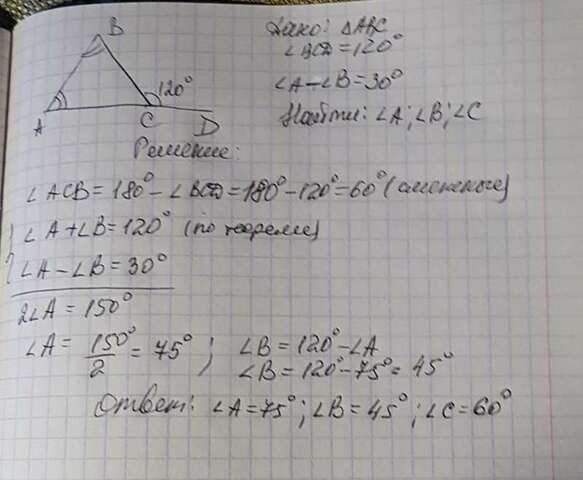 B
A
C
D
120°
Дано: △ABC
∠BCD = 120°
∠A - ∠B = 30°
Найти: ∠A; ∠B; ∠C
Решение:
∠ACB = 180° - ∠BCD = 180° - 120° = 60° (смежные)
∠A + ∠B = 120° (по теореме)
∠A - ∠B = 30°
2∠A = 150°
∠A = 150°/2 = 75° ; ∠B = 120° - ∠A
∠B = 120° - 75° = 45°
Ответ: ∠A = 75° ; ∠B = 45° ; ∠C = 60°